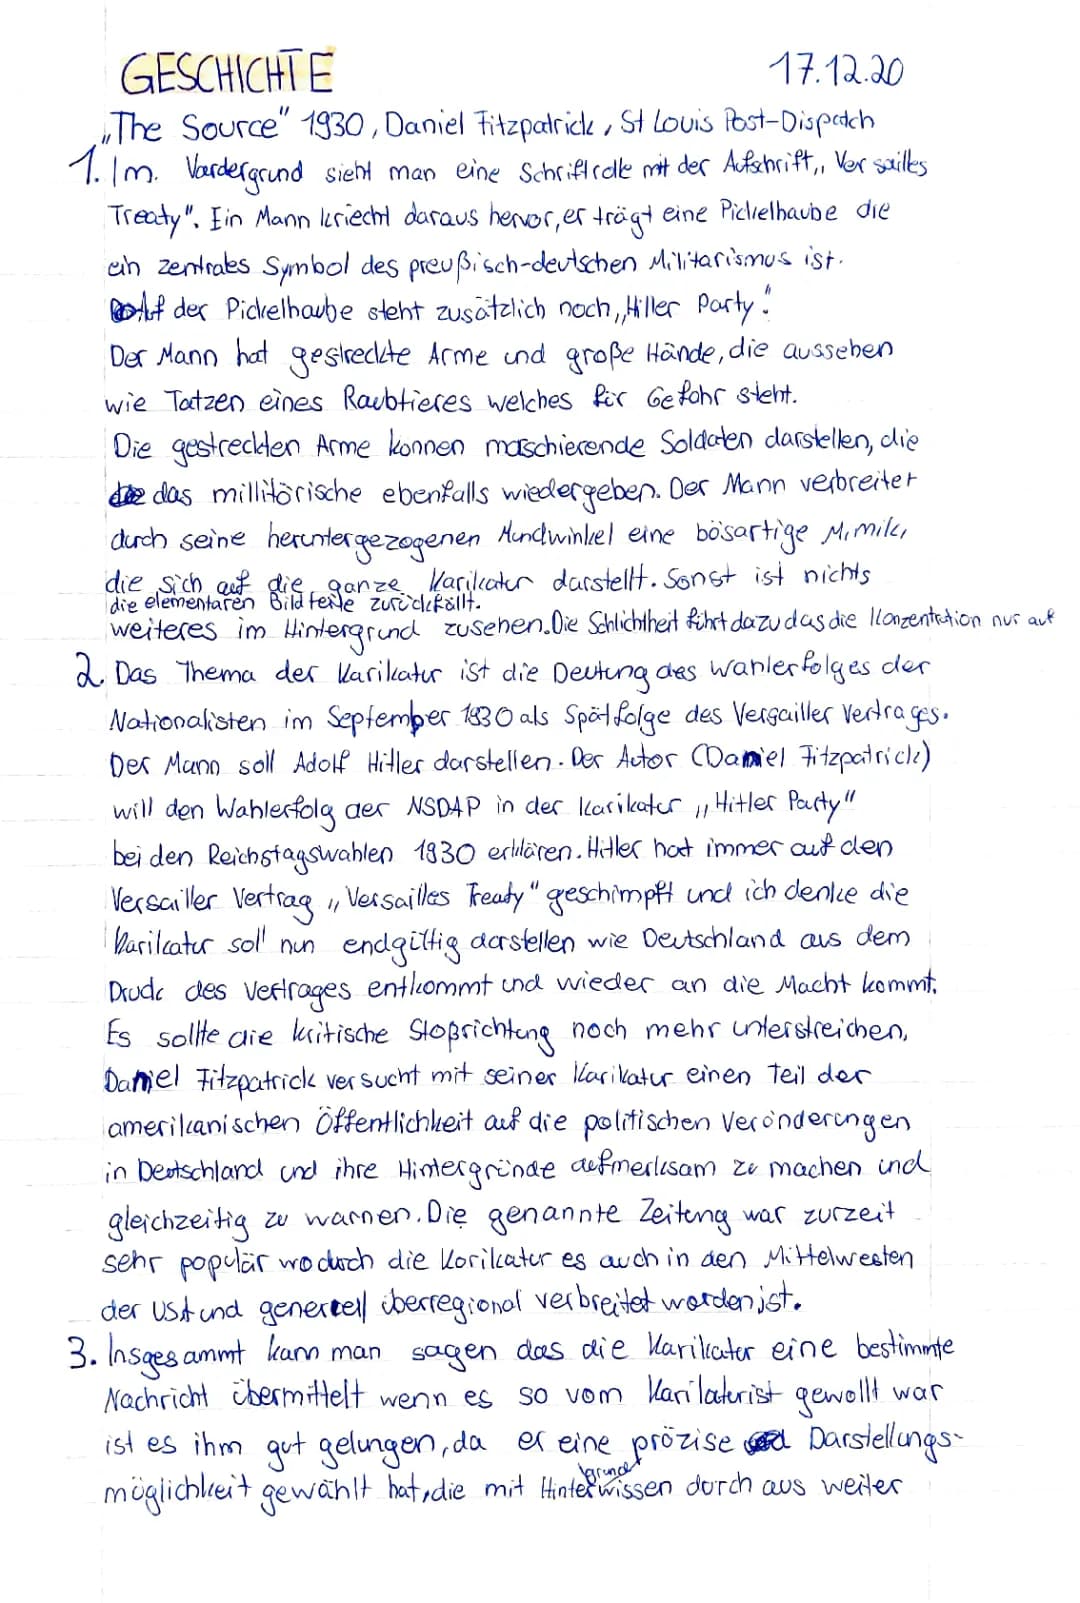 GESCHICHTE 17.12.20
„The Source" 1930, Daniel Fitzpatrick, St Louis Post-Dispatch
1. Im Vordergrund sieht man eine Schriftrolle mit der Aufschrift „Versailles
Treaty". Ein Mann kriecht daraus hervor, er trägt eine Pickelhaube die
ein zentrales Symbol des preußisch-deutschen Militarismus ist.
Auf der Pickelhaube steht zusätzlich noch „Hitler Party".
Der Mann hat gestreckte Arme und große Hände, die aussehen
wie Tatzen eines Raubtieres welches für Gefahr steht.
Die gestreckten Arme konnen maschierende Soldaten darstellen, die
das millitärische ebenfalls wiedergeben. Der Mann verbreitet
durch seine heruntergezogenen Mundwinkel eine bösartige Mimik,
die sich auf die ganze Karikatur darstellt. Sonst ist nichts
weiteres im Hintergrund zusehen. Die Schlichtheit führt dazu das die Konzentration nur auf
die elementaren Bildteile zurückfällt.
2. Das Thema der Karikatur ist die Deutung des Wahlerfolges der
Nationalisten im September 1930 als Spätfolge des Versailler Vertrages.
Der Mann soll Adolf Hitler darstellen. Der Autor (Daniel Fitzpatrick)
will den Wahlerfolg der NSDAP in der Karikatur „Hitler Party"
bei den Reichstagswahlen 1930 erklären. Hitler hat immer auf den
Versailler Vertrag „Versailles Treaty" geschimpft und ich denke die
Karikatur soll nun endgültig darstellen wie Deutschland aus dem
Druck des Vertrages entkommt und wieder an die Macht kommt.
Es sollte die kritische Stoßrichtung noch mehr unterstreichen,
Daniel Fitzpatrick versucht mit seiner Karikatur einen Teil der
amerikanischen Öffentlichkeit auf die politischen Veränderungen
in Deutschland und ihre Hintergründe aufmerksam zu machen und
gleichzeitig zu warnen. Die genannte Zeitung war zurzeit
sehr populär wodurch die Karikatur es auch in den Mittelwesten
der USA und generell überregional verbreitet worden ist.
3. Insgesammt kann man sagen das die Karikatur eine bestimmte
Nachricht übermittelt wenn es so vom Karikaturist gewollt war
ist es ihm gut gelungen, da er eine präzise Darstellungs-
möglichkeit gewählt hat, die mit Hintergrundwissen durch aus weiter